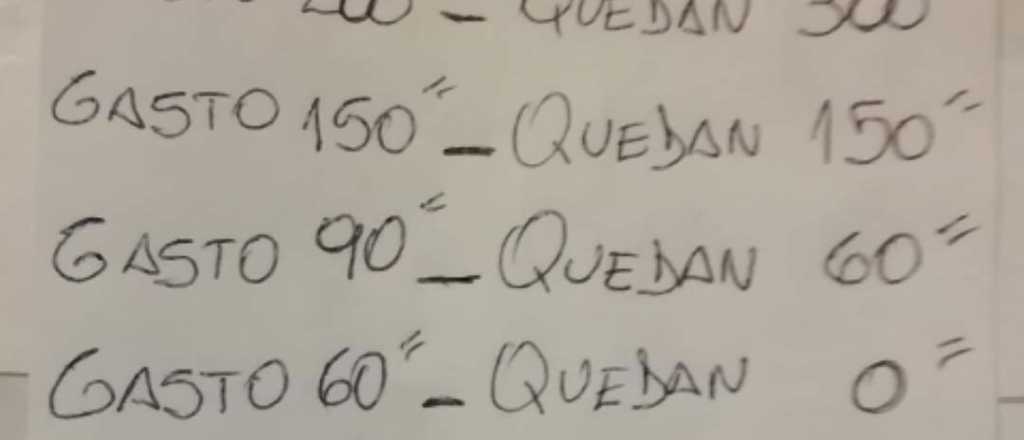 200 - QUEDAN 300
GASTO 150= - QUEDAN 150=
GASTO 90= - QUEDAN 60=
GASTO 60= - QUEDAN 0=